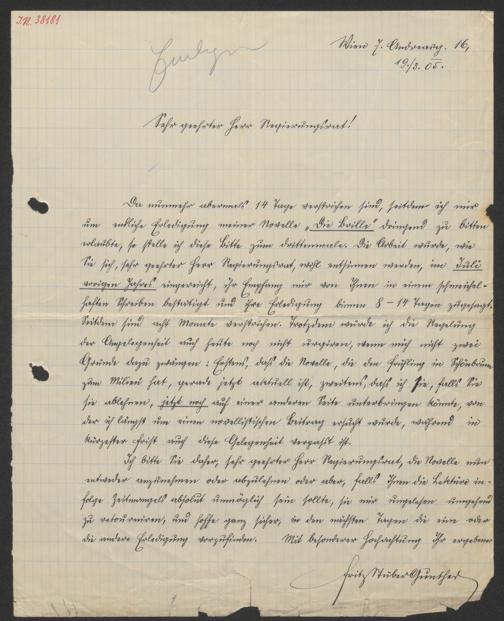 I.N. 38181
Wien 7. Andreasg. 16,
19./3. 05.
Sehr geehrter Herr Regierungsrat!
Da nunmehr abermals 14 Tage verstrichen sind, seitdem ich mir
um endliche Erledigung meiner Novelle „Die Brille“ dringend zu bitten
erlaubte, so stelle ich diese Bitte zum drittenmale. Die Arbeit wurde, wie
Sie sich, sehr geehrter Herr Regierungsrat, wohl entsinnen werden, im Juli
vorigen Jahres eingereicht, ihr Empfang mir von Ihnen in einem schmeichel-
haften Schreiben bestätigt und ihre Erledigung binnen 8-14 Tagen zugesagt.
Seitdem sind acht Monate verstrichen. Trotzdem würde ich die Regelung
der Angelegenheit auch heute noch nicht urgiren, wenn mich nicht zwei
Gründe dazu zwängen: Erstens, daß die Novelle, die den Frühling in Schönbrunn
zum Milieu hat, gerade jetzt aktuell ist, zweitens, daß ich sie, falls Sie
sie ablehnen, jetzt noch auf einer anderen Seite unterbringen könnte, von
der ich längst um einen novellistischen Beitrag ersucht wurde, während in
kürzester Frist auch diese Gelegenheit verpasst ist.
Ich bitte Sie daher, sehr geehrter Herr Regierungsrat, die Novelle nun
entweder anzunehmen oder abzulehnen oder aber, falls Ihnen die Lektüre in-
folge Zeitmangels absolut unmöglich sein sollte, sie mir ungelesen umgehend
zu retourniren, und hoffe ganz sicher, in den nächsten Tagen die eine oder
die andere Erledigung vorzufinden. Mit besonderer Hochachtung Ihr ergebener
Fritz Stüber Gunther